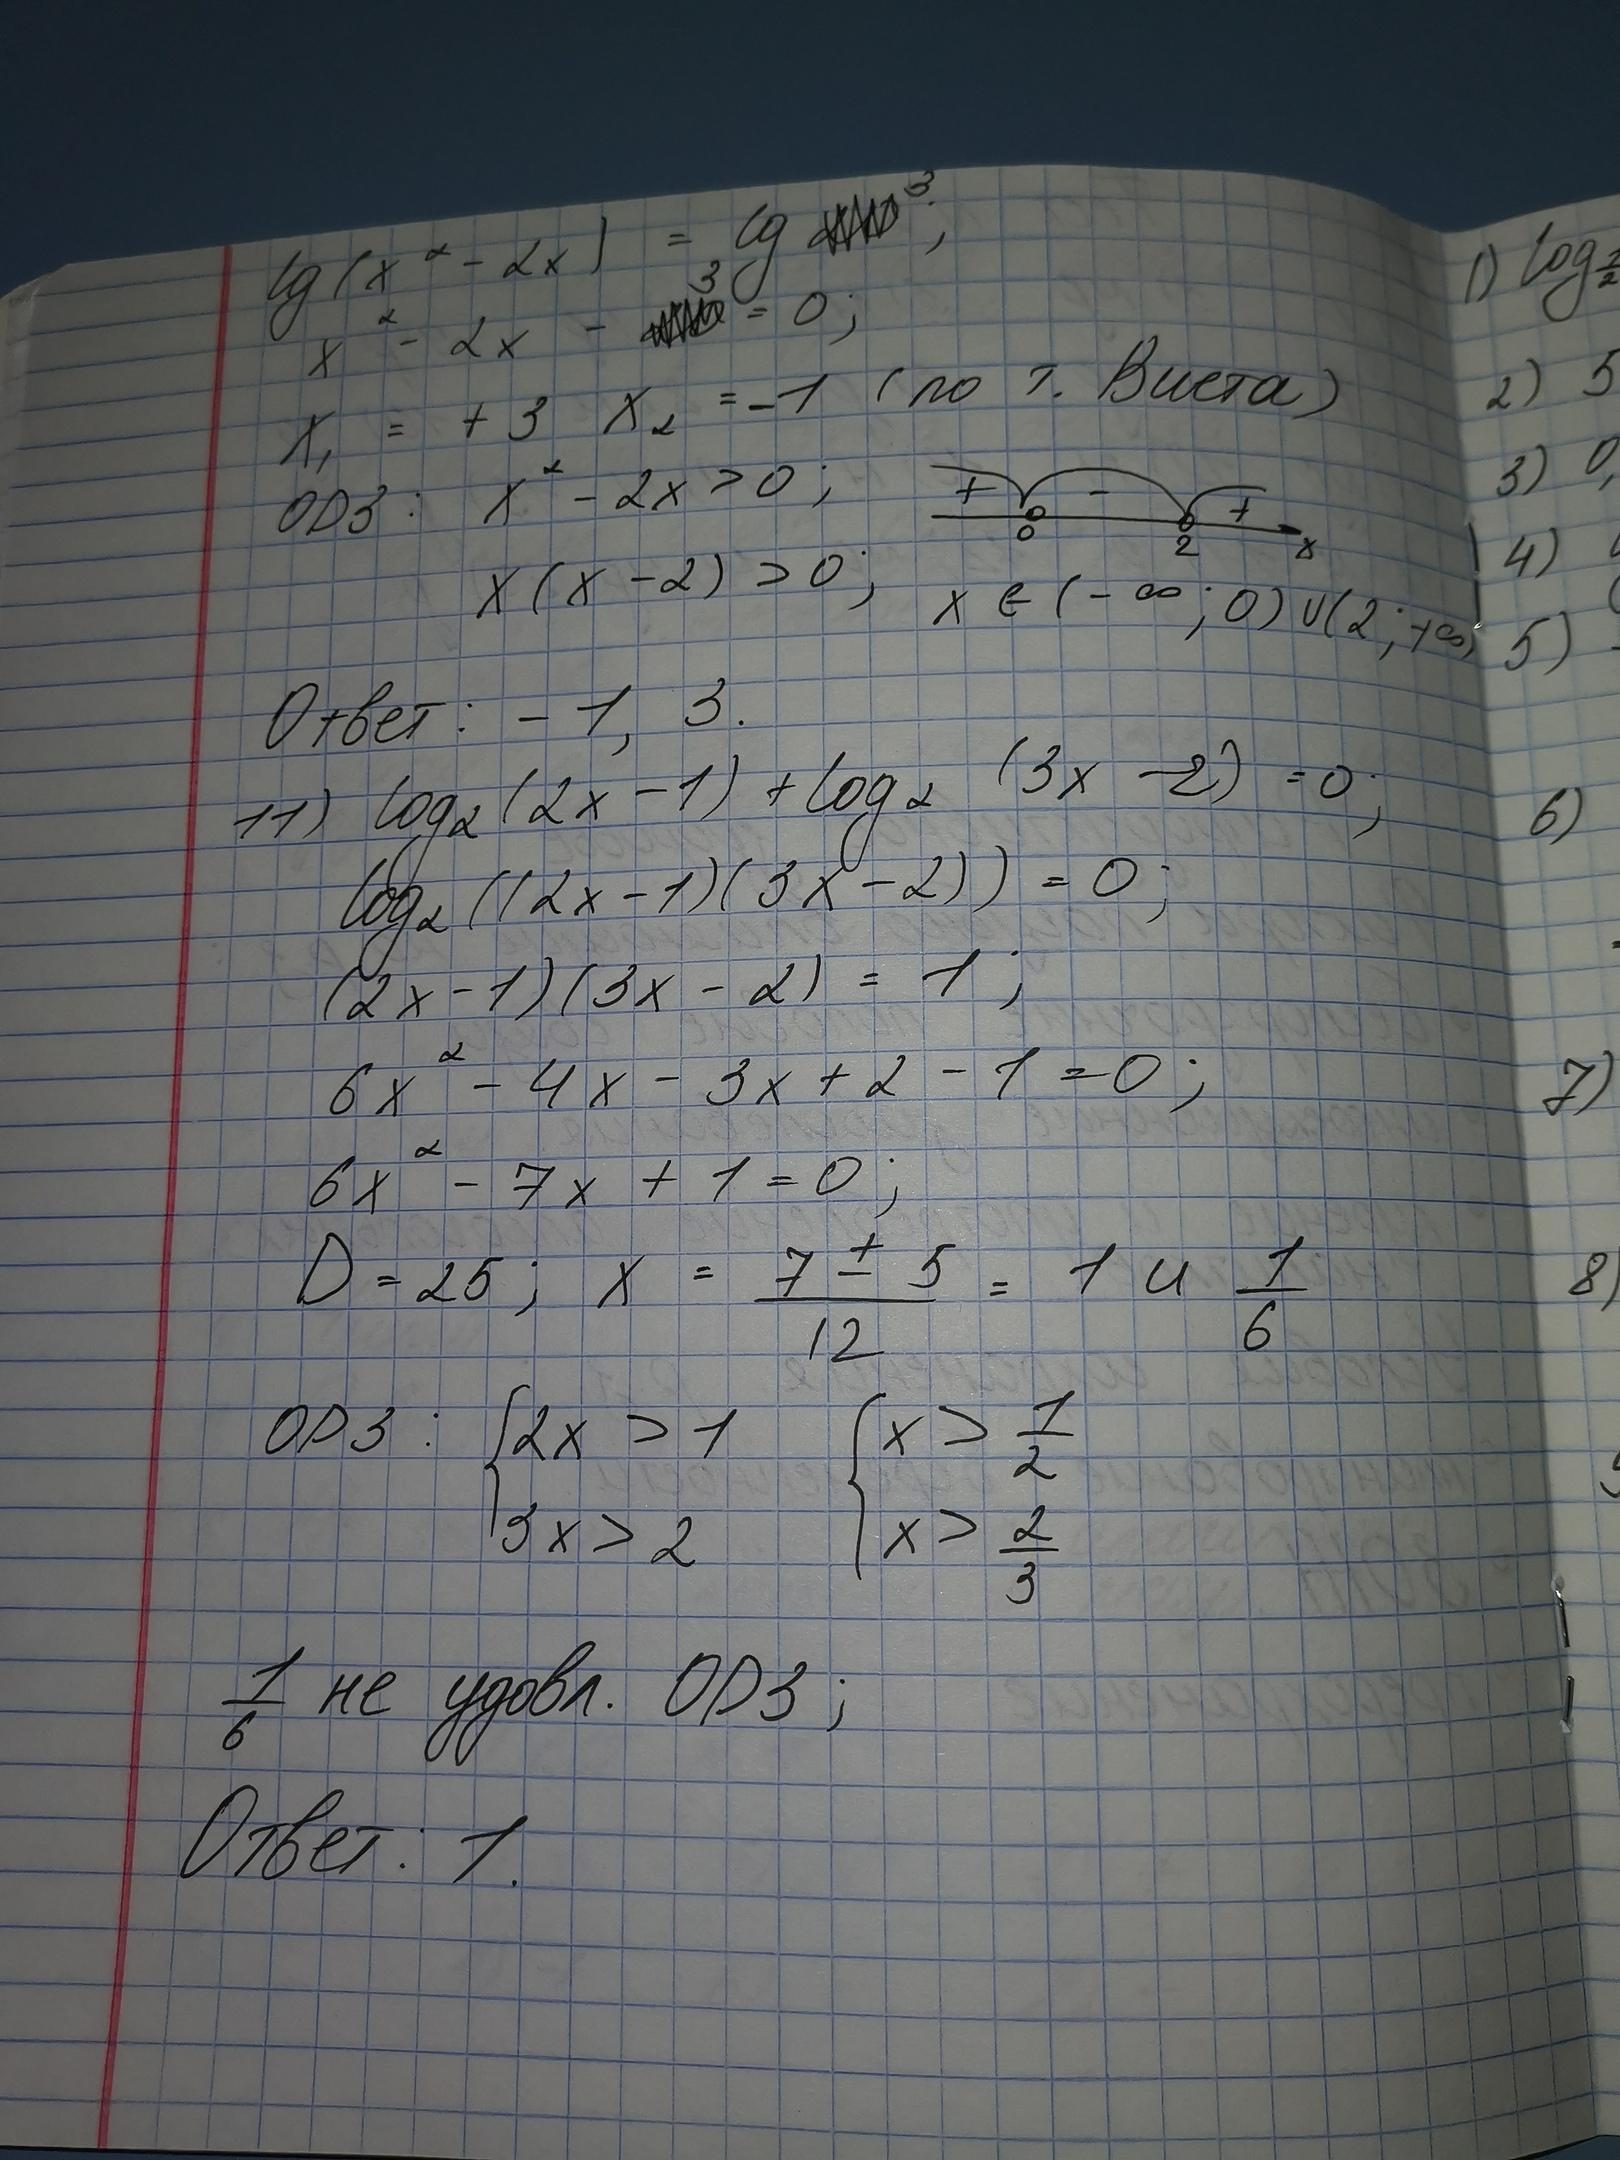 lg(x² - 2x) = lg 3;
x² - 2x - 3 = 0;
x₁ = +3 x₂ = -1 (по т. Виета)
ОДЗ: x² - 2x > 0;
+ - +
0 2 x
x(x - 2) > 0; x ∈ (-∞; 0) ∪ (2; +∞)
Ответ: -1, 3.
11) log₂(2x - 1) + log₂ (3x - 2) = 0;
log₂((2x - 1)(3x - 2)) = 0;
(2x - 1)(3x - 2) = 1;
6x² - 4x - 3x + 2 - 1 = 0;
6x² - 7x + 1 = 0;
D = 25; x = (7 ± 5)/12 = 1 и 1/6
ОДЗ: { 2x > 1 { x > 1/2
3x > 2 x > 2/3
1/6 не удовл. ОДЗ;
Ответ: 1.
1) log
2) 5
3) 0,
4)
5)
6)
7)
8)